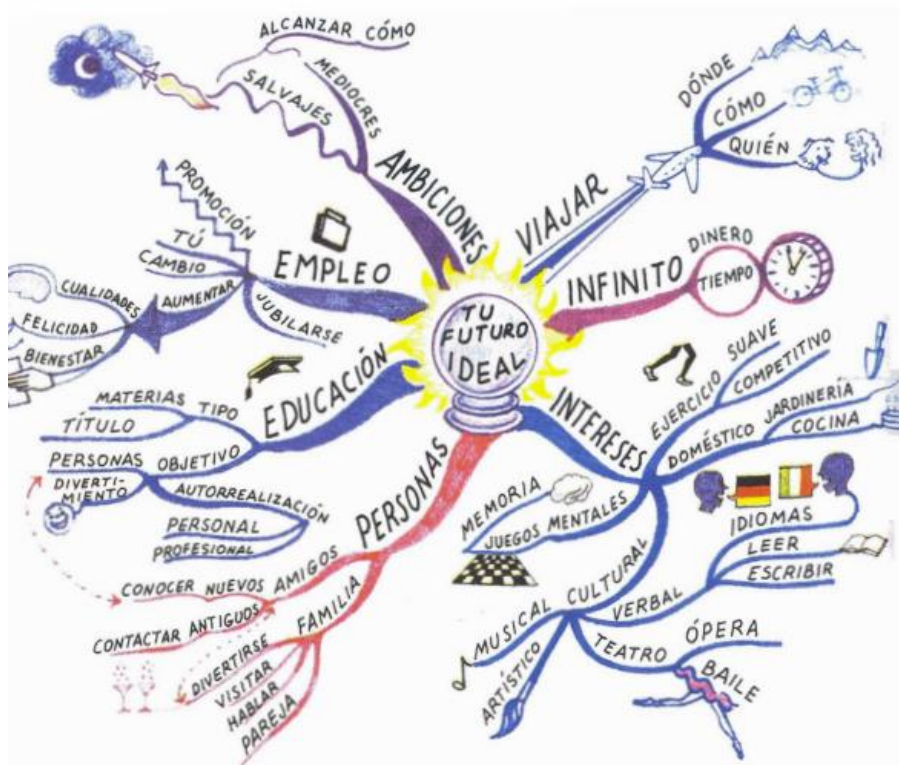 TU
FUTURO
IDEAL
VIAJAR
DÓNDE
CÓMO
QUIÉN
INFINITO
DINERO
TIEMPO
INTERESES
EJERCICIO
SUAVE
COMPETITIVO
DOMÉSTICO
JARDINERÍA
COCINA
JUEGOS MENTALES
MEMORIA
CULTURAL
VERBAL
IDIOMAS
LEER
ESCRIBIR
TEATRO
ÓPERA
BAILE
ARTÍSTICO
MUSICAL
PERSONAS
AMIGOS
CONOCER NUEVOS
CONTACTAR ANTIGUOS
FAMILIA
DIVERTIRSE
VISITAR
HABLAR
PAREJA
EDUCACIÓN
TIPO
MATERIAS
TÍTULO
OBJETIVO
PERSONAS
DIVERTI-
MIENTO
AUTORREALIZACIÓN
PERSONAL
PROFESIONAL
EMPLEO
PROMOCIÓN
TÚ
CAMBIO
AUMENTAR
CUALIDADES
FELICIDAD
BIENESTAR
JUBILARSE
AMBICIONES
MEDIOCRES
SALVAJES
ALCANZAR CÓMO